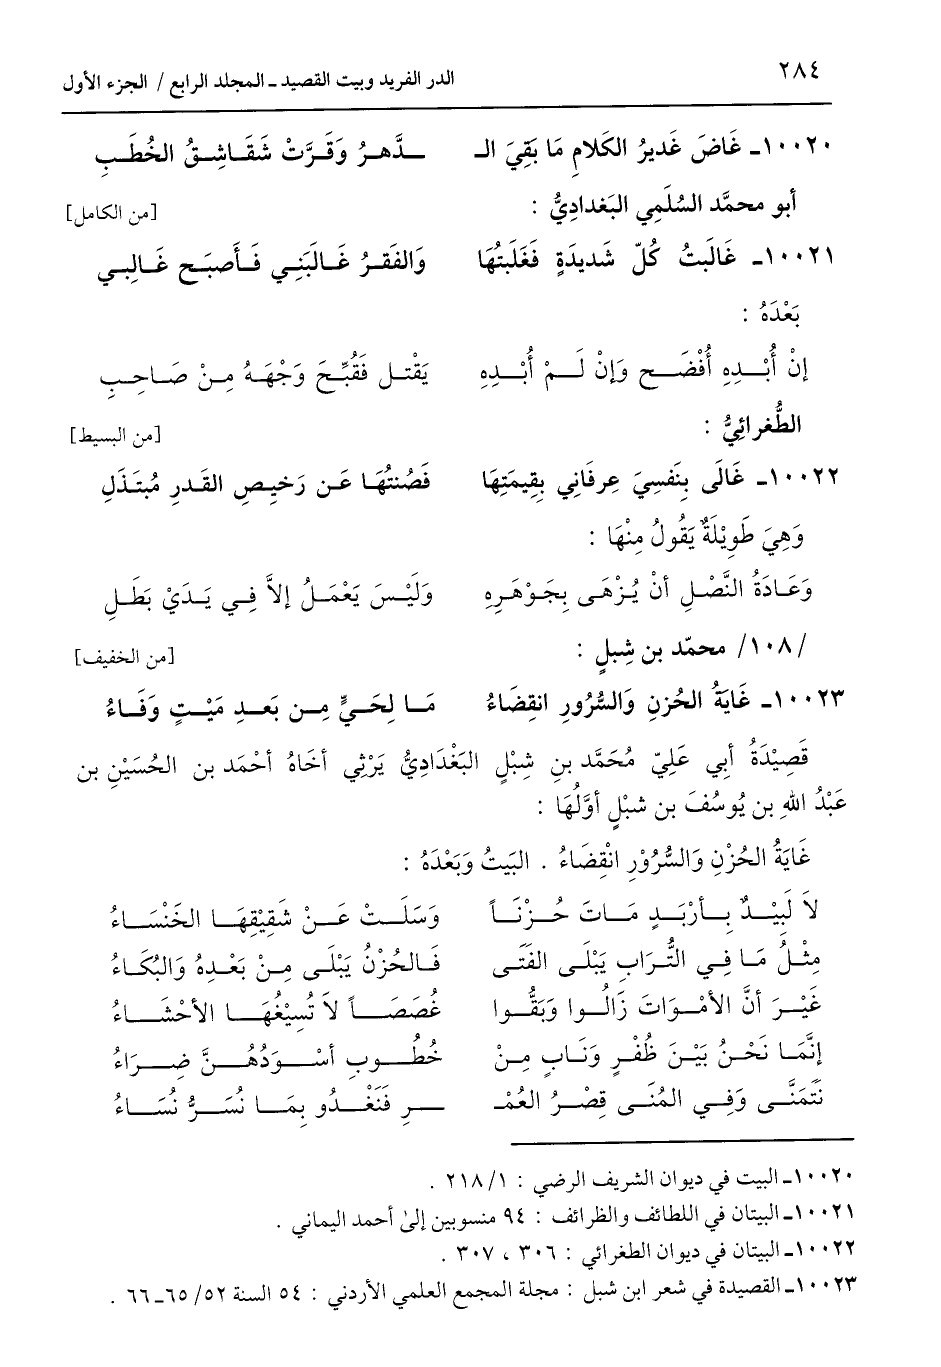 ٢٨٤ الدر الفريد وبيت القصيد ـ المجلد الرابع / الجزء الأول
١٠٠٢٠ـ غَاضَ غَدِيرُ الكَلَامِ مَا بَقِيَ الـ ـدَّهرُ وَقَرَّتْ شَقَاشِقُ الخُطَبِ
أبو محمَّد السُّلَمِي البَغدَادِيُّ : [من الكامل]
١٠٠٢١ـ غَالَبتُ كُلّ شَدِيدَةٍ فَغَلَبتُهَا وَالفَقرُ غَالَبَنِي فَأَصبَح غَالِبي
بَعْدَهُ :
إنْ أُبْدِهِ أُفْضَح وَإنْ لَمْ أُبْدِهِ يَقْتل فَقُبِّحَ وَجْهَهُ مِنْ صَاحِبِ
الطُّغرائِيُّ : [من البسيط]
١٠٠٢٢ـ غَالَى بِنَفسِيَ عِرفَانِي بِقِيمَتِهَا فَصُنتُهَا عَن رَخيصِ القَدرِ مُبتَذَلِ
وَهِيَ طَوِيْلَةٌ يَقُولُ مِنْهَا :
وَعَادَةُ النَّصْلِ أنْ يُزْهَى بِجَوْهَرِهِ وَلَيْسَ يَعْمَلُ إلاَّ فِي يَدَيْ بَطَلِ
/١٠٨/ محمّد بن شِبلٍ : [من الخفيف]
١٠٠٢٣ـ غَايَةُ الحُزنِ وَالسُّرُورِ انقِضَاءُ مَا لِحَيٍّ مِن بَعدِ مَيْتٍ وَفَاءُ
قَصِيْدَةُ أبِي عَلِيّ مُحَمَّد بنِ شِبْلٍ البَغْدَادِيُّ يَرْثِي أخَاهُ أحْمَد بن الحُسَيْنِ بن
عَبْدُ اللهِ بن يُوسُفَ بن شبْلٍ أوَّلُهَا :
غَايَةُ الحُزْنِ وَالسُّرُوْرِ انْقِضَاءُ . البَيْتُ وَبَعْدَهُ :
لاَ لَبِيْدٌ بِأرْبَدٍ مَاتَ حُزْنَاً وَسَلَتْ عَنْ شَقِيْقِهَا الخَنْسَاءُ
مِثْلُ مَا فِي التُّرَابِ يَبْلَى الفَتَى فَالحُزْنُ يَبْلَى مِنْ بَعْدِهُ وَالبُكَاءُ
غَيْرَ أنَّ الأمْوَاتَ زَالُوا وَبَقُّوا غُصَصَاً لاَ تُسِيْغُهَا الأحْشَاءُ
إنَّمَا نَحْنُ بَيْنَ ظُفْرٍ وَنَابٍ مِنْ خُطُوبٍ أسْوَدُهُنَّ ضِرَاءُ
نَتَمَنَّى وَفِي المُنَى قِصْرُ العُمْـ ـرِ فَنَغْدُو بِمَا نُسَرُّ نُسَاءُ
١٠٠٢٠ـ البيت في ديوان الشريف الرضي : ٢١٨/١ .
١٠٠٢١ـ البيتان في اللطائف والظرائف : ٩٤ منسوبين إلىٰ أحمد اليماني .
١٠٠٢٢ـ البيتان في ديوان الطغرائي : ٣٠٦ ، ٣٠٧ .
١٠٠٢٣ـ القصيدة في شعر ابن شبل : مجلة المجمع العلمي الأردني : ٥٤ السنة ٥٢/ ٦٥ـ٦٦ .